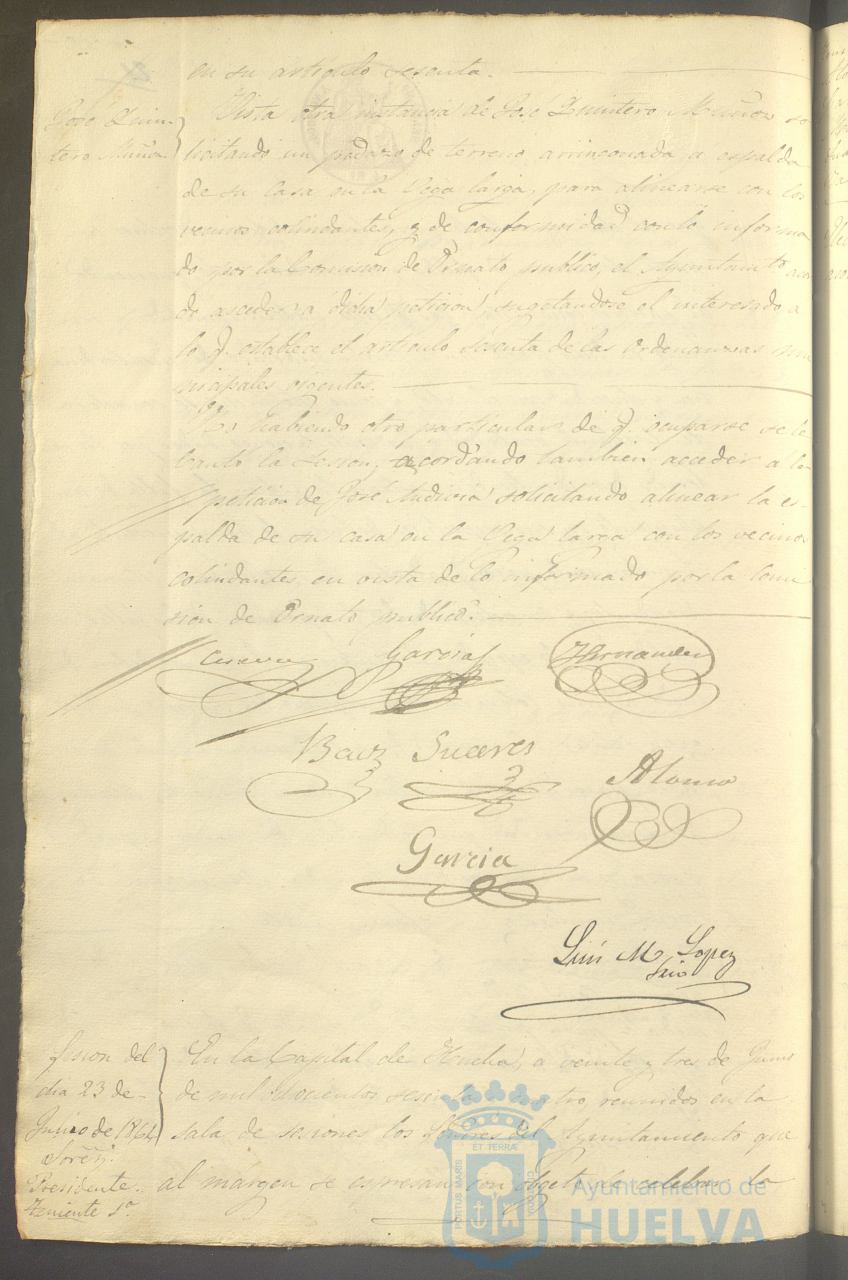 en su articulo sesenta.
José Quin-
tero Muñoz
Vista otra instancia de José Quintero Muñoz so
licitando un pedazo de terreno arrinconado a espalda
de su casa en la Vega larga, para alinearse con los
vecinos colindantes, y de conformidad con lo informa
do por la Comision de Ornato publico, el Ayuntamiento acor
dó acceder a dicha peticion, sugetandose el interesado a
lo q. establece el articulo sesenta de las ordenanzas mu
nicipales vigentes.
No habiendo otro particular de q. ocuparse se le
bantó la sesion, acordando tambien acceder a la
peticion de José Audivia solicitando alinear la es-
palda de su casa en la Vega larga con los vecinos
colindantes en vista de lo informado por la Comi
sion de Ornato publico.
Garcia
Hernandez
Baez Suceres
Alonso
Garcia
Luis M. Lopez
Srio
Sesion del
dia 23 de
Junio de 1864
Sores.
Presidente
Teniente 1º
En la Capital de Huelva, a veinte y tres de Junio
de mil ochocientos sesenta cuatro reunidos en la
sala de sesiones los Señores del Ayuntamiento que
al margen se espresan con objeto de celebrar la
PORTUS MARIS ET TERRÆ CUSTODIA
Ayuntamiento de
HUELVA